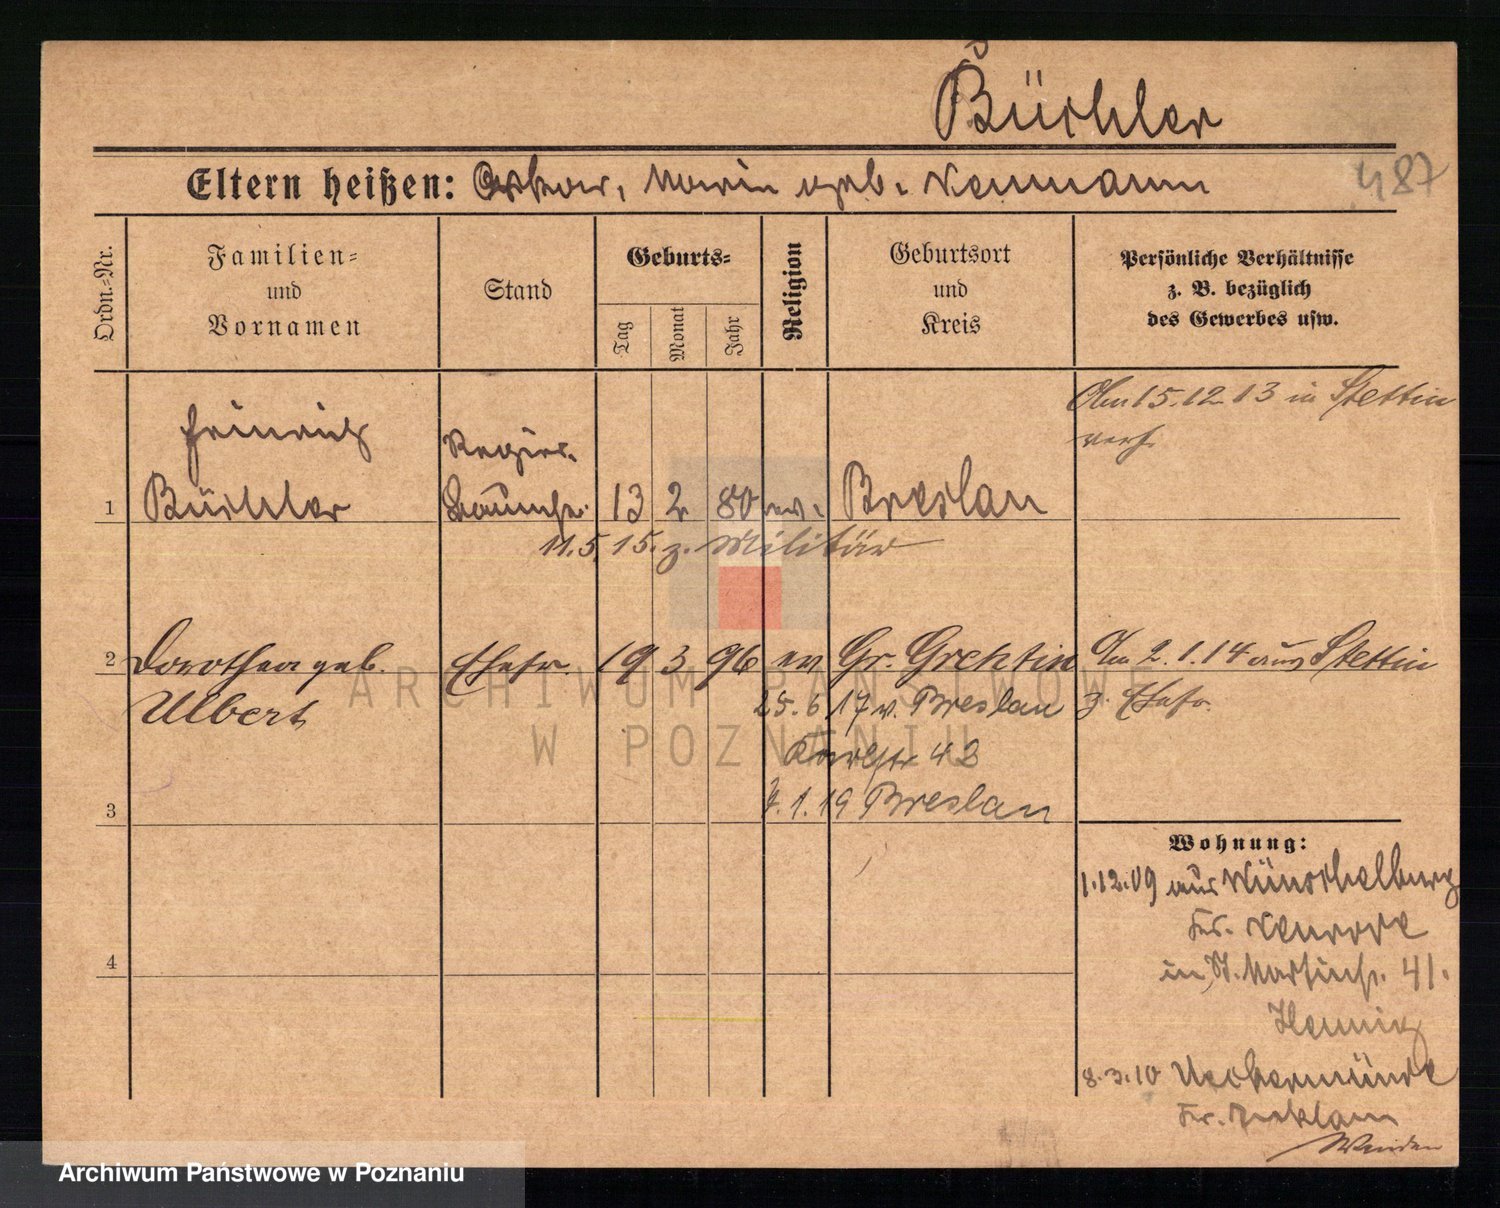 Büchler
Eltern heißen: Oskar, Marie geb. Neumann
487
Ordn.-Nr.
Familien-
und
Vornamen
Stand
Geburts-
Tag
Monat
Jahr
Religion
Geburtsort
und
Kreis
Persönliche Verhältnisse
z. B. bezüglich
des Gewerbes usw.
15.12.13 in Stettin
verh.
Heinrich
Regier.
1 Büchler 13 2 80 ev. Breslau
11.5.15. z. Militär
2 Dorothea geb. Ehefr. 19 3 96 ev Gr. Am 2.1.14 aus Stettin
Ulbert
25.6.17 v. Breslau
z. Ehefr.
42
1.19 Breslau
3
Wohnung:
1.12.09 aus Wünschelburg
Kr. Neurode
in St. Martinstr. 41.
Hennig
4
8.3.10 Ueckermünde
Wenden
ARCHIWUM PAŃSTWOWE
W POZNANIU
Archiwum Państwowe w Poznaniu